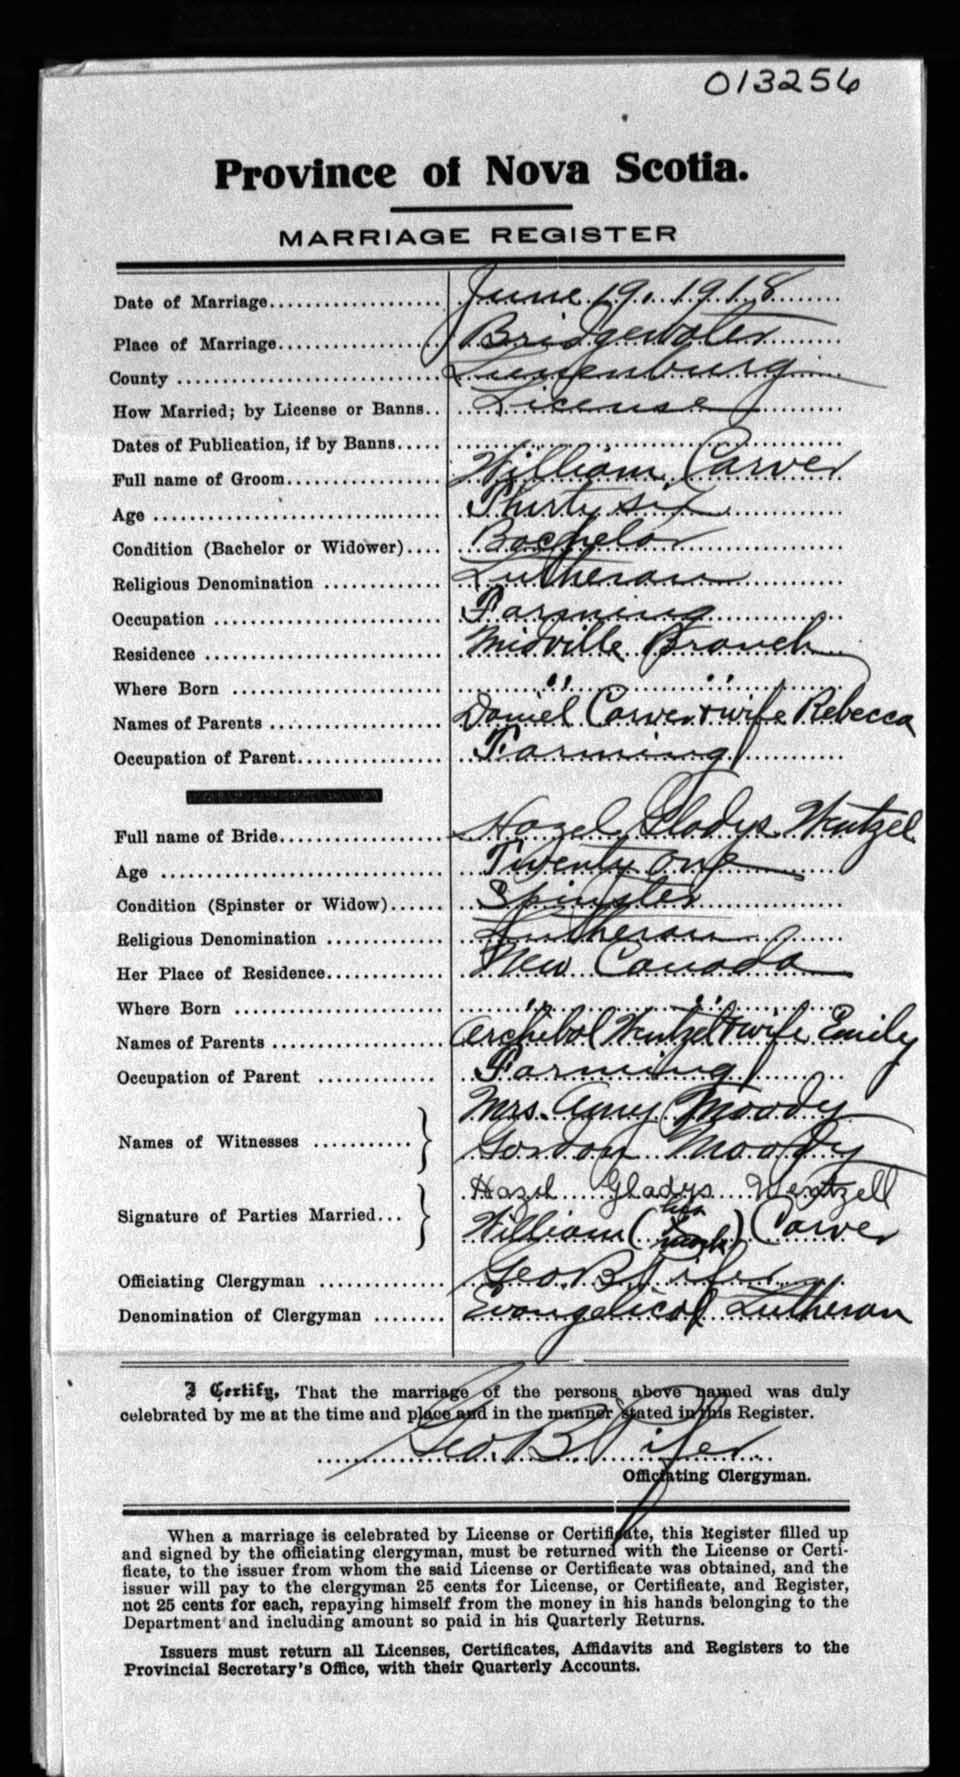 013256
Province of Nova Scotia.
MARRIAGE REGISTER
Date of Marriage.................... June 19, 1918
Place of Marriage................... Bridgewater
County ........................... Lunenburg
How Married; by License or Banns.. License
Dates of Publication, if by Banns.....
Full name of Groom.................. William Carver
Age ............................... Thirty six
Condition (Bachelor or Widower).... Bachelor
Religious Denomination ............. Lutheran
Occupation ......................... Farming
Residence .......................... Midville Branch
Where Born ........................ " "
Names of Parents ................... Daniel Carver & wife Rebecca
Occupation of Parent................ Farming
Full name of Bride.................. Hazel Gladys Wentzel
Age ............................... Twenty one
Condition (Spinster or Widow)...... Spinster
Religious Denomination ............. Lutheran
Her Place of Residence.............. New Canada
Where Born ........................ " "
Names of Parents ................... Archibal Wentzel & wife Emily
Occupation of Parent ............. Farming
Names of Witnesses ........... } Mrs. Amy Moody
Gordon Moody
Signature of Parties Married... } Hazel Gladys Wentzell
William (his X mark) Carver
Officiating Clergyman .............. Geo B Pifer
Denomination of Clergyman ........ Evangelical Lutheran
I Certify, That the marriage of the persons above named was duly
celebrated by me at the time and place and in the manner stated in this Register.
Geo. B. Pifer
Officiating Clergyman.
When a marriage is celebrated by License or Certificate, this Register filled up
and signed by the officiating clergyman, must be returned with the License or Certi-
ficate, to the issuer from whom the said License or Certificate was obtained, and the
issuer will pay to the clergyman 25 cents for License, or Certificate, and Register,
not 25 cents for each, repaying himself from the money in his hands belonging to the
Department and including amount so paid in his Quarterly Returns.
Issuers must return all Licenses, Certificates, Affidavits and Registers to the
Provincial Secretary's Office, with their Quarterly Accounts.